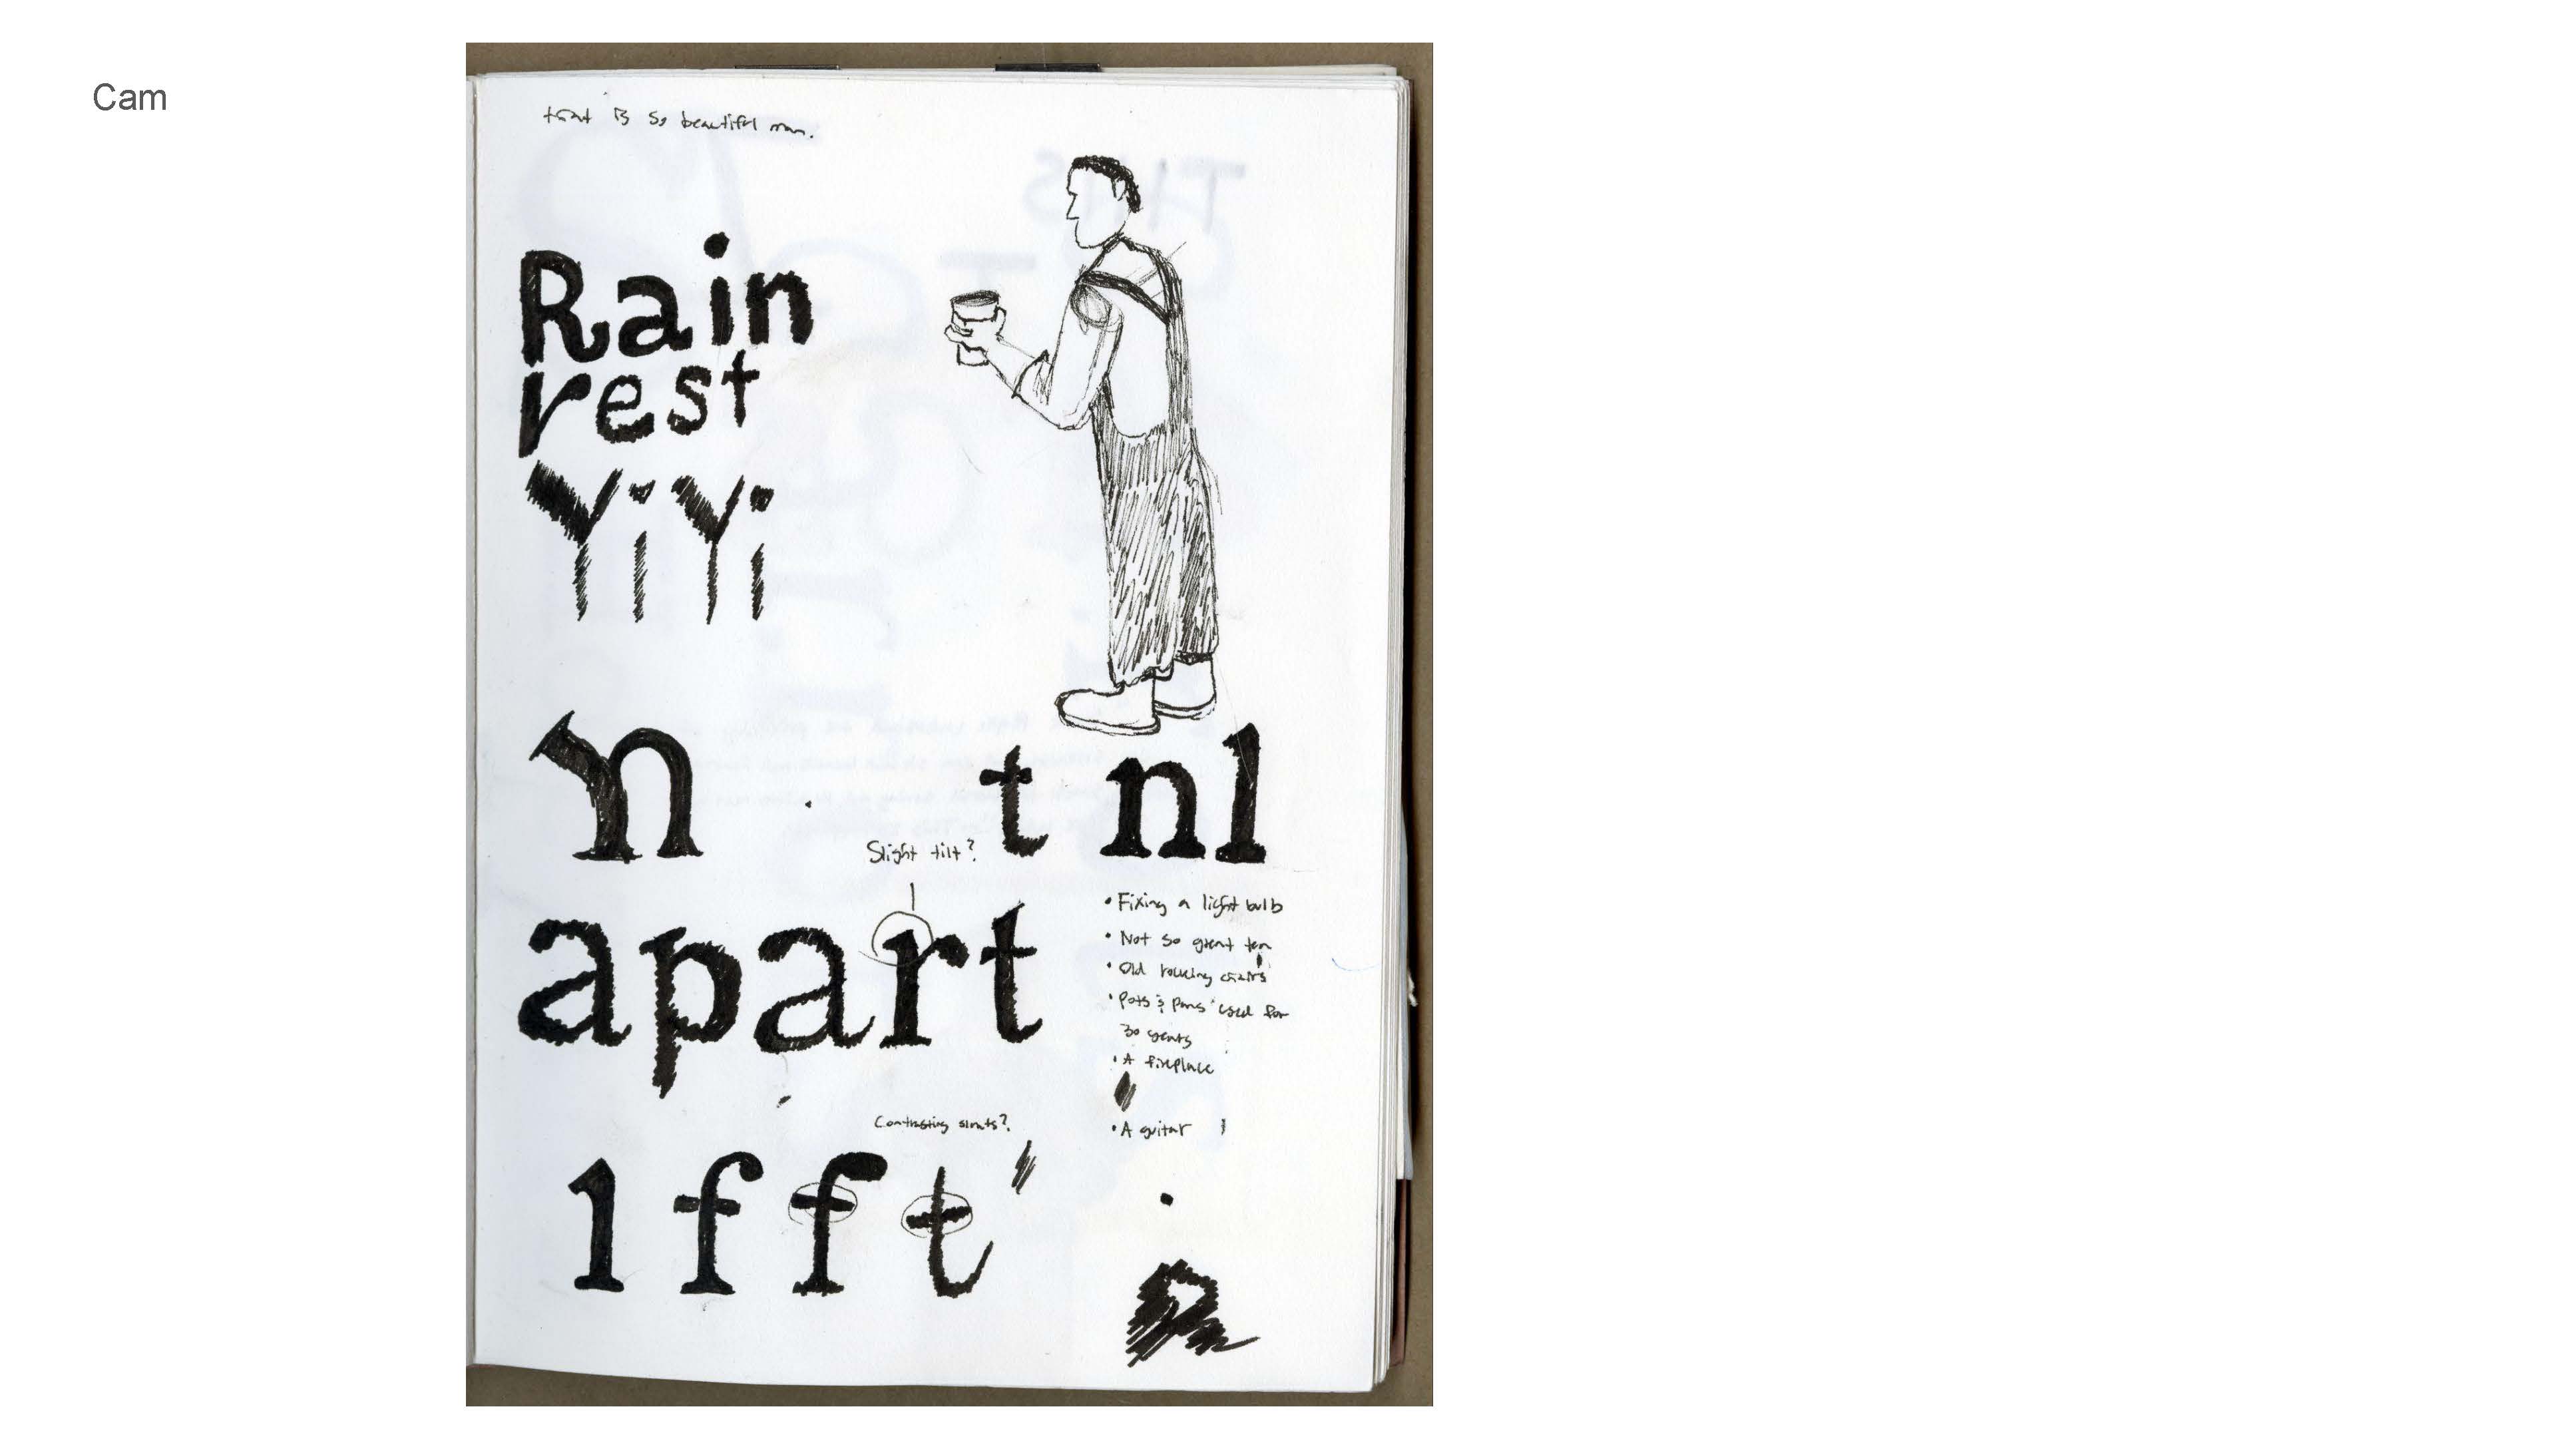 Cam
that is so beautiful man.
Rain
rest
YiYi
n t nl
Slight tilt?
apart
• Fixing a light bulb
• Not so great tea
• Old rocking chairs
• Pots & pans used for
30 years
• A fireplace
• A guitar
Contrasting slants?
l f f t